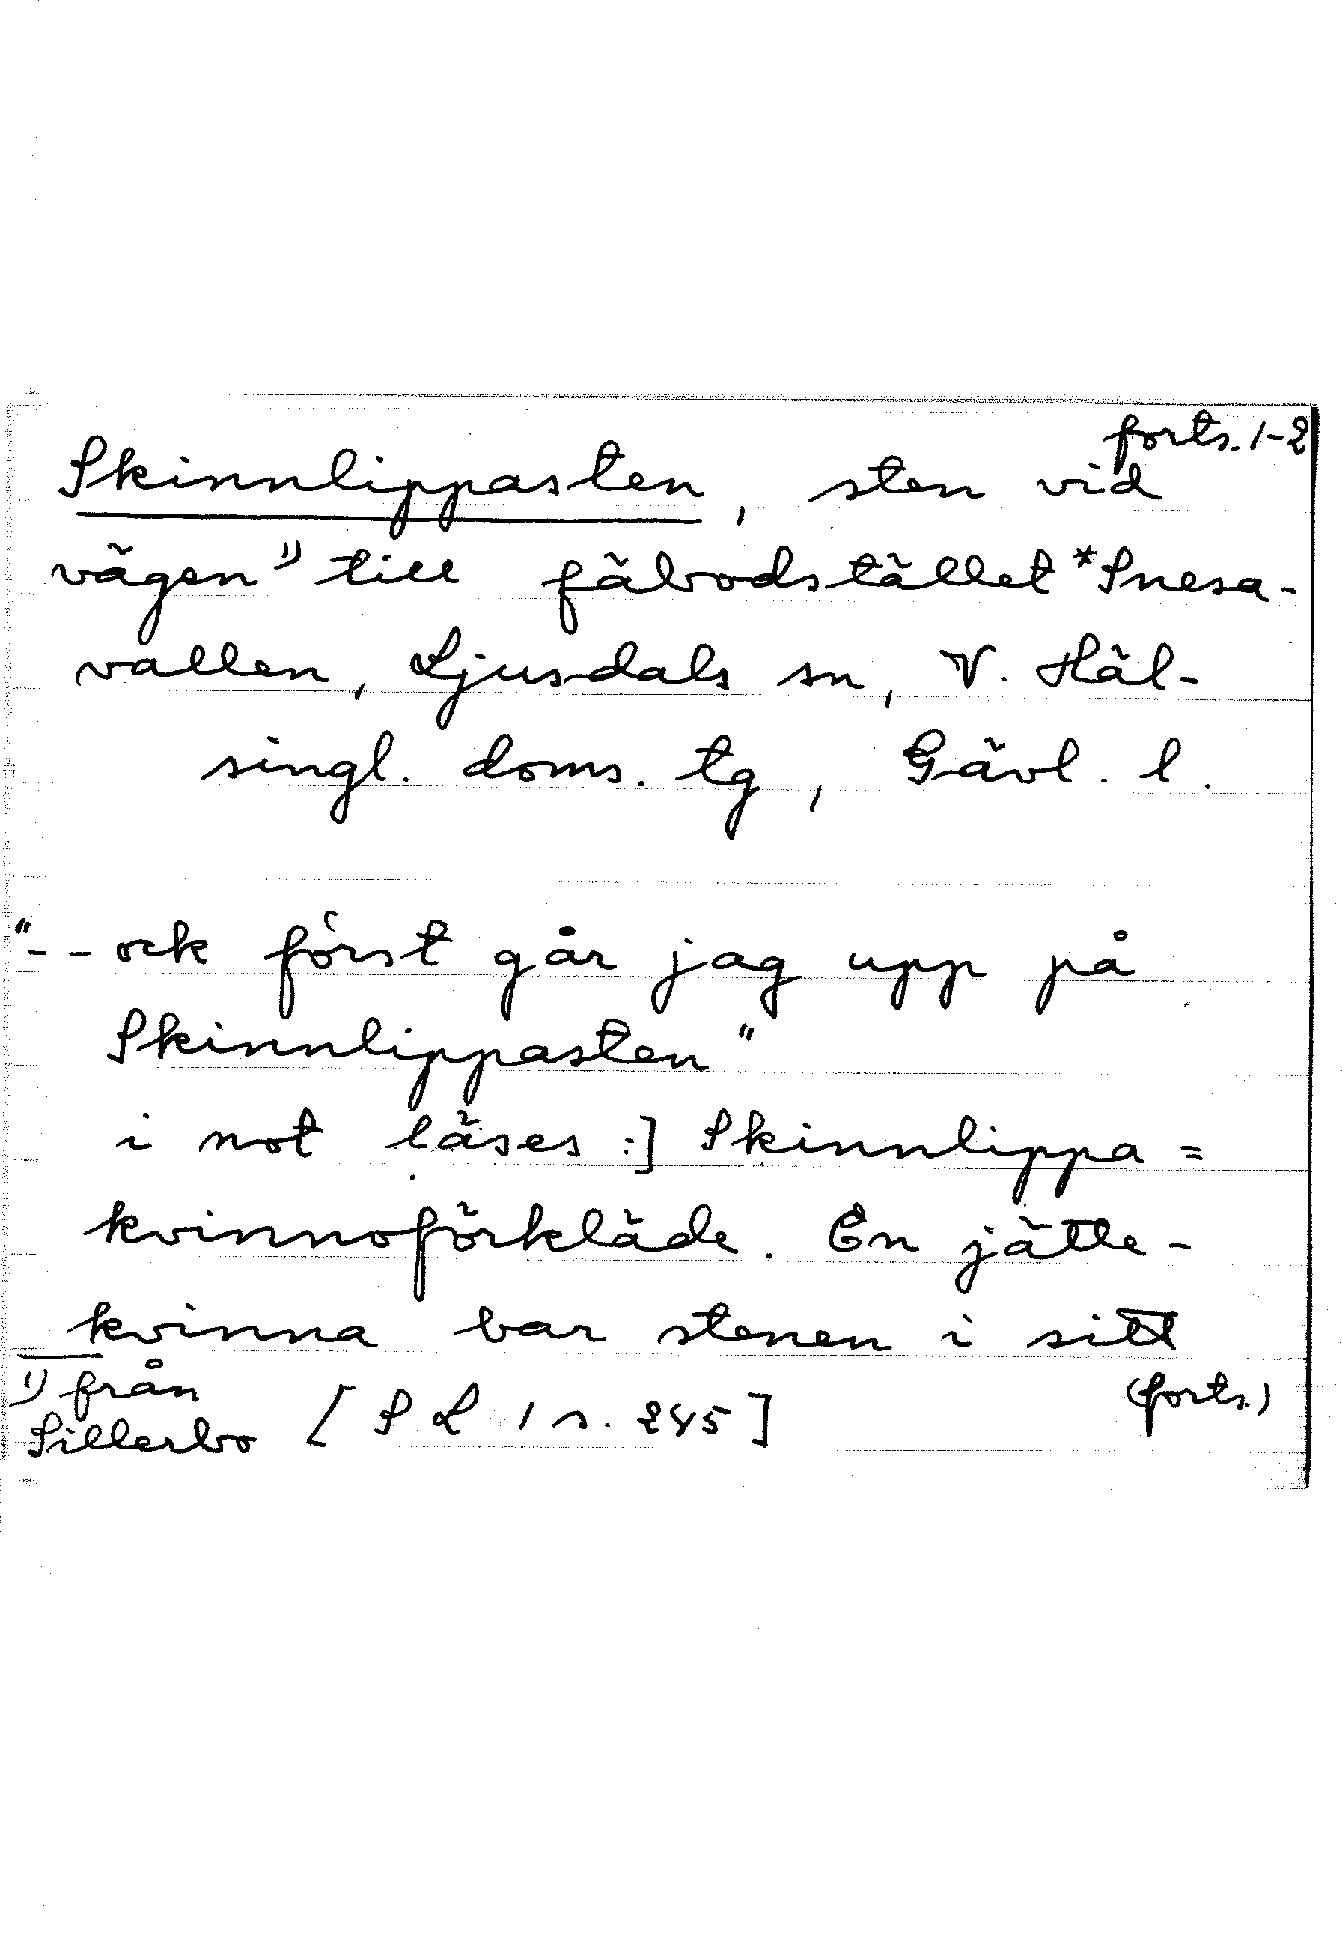 forts. 1-2
Skinnlippasten, sten vid
vägen 1) till fäbodstället *Snesa-
vallen, Ljusdals sn, V. Häl-
singl. doms. tg, Gävl. l.
"-- ock först går jag upp på
Skinnlippasten"
i not läses:] Skinnlippa =
kvinnoförkläde. En jätte-
kvinna bar stenen i sitt
(forts.)
1) från
Sillerbo [SL 1 s. 245]